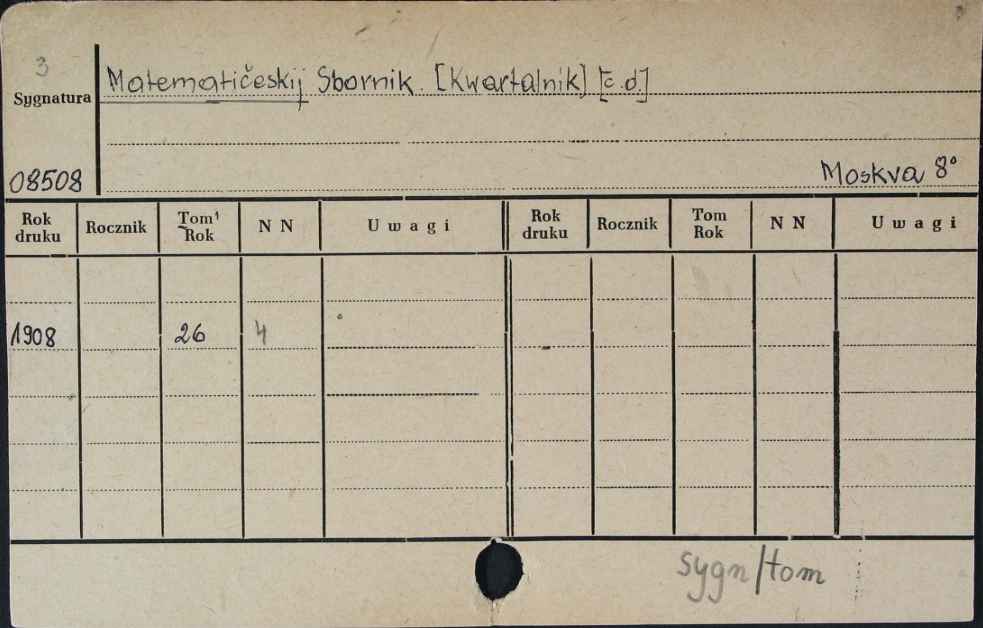 3
Matematičeskij Sbornik. [Kwartalnik] [c.d.]
Sygnatura
08508
Moskva 8°
Rok druku Rocznik Tom¹ Rok N N Uwagi Rok druku Rocznik Tom Rok N N Uwagi
1908 26 4
sygn/tom